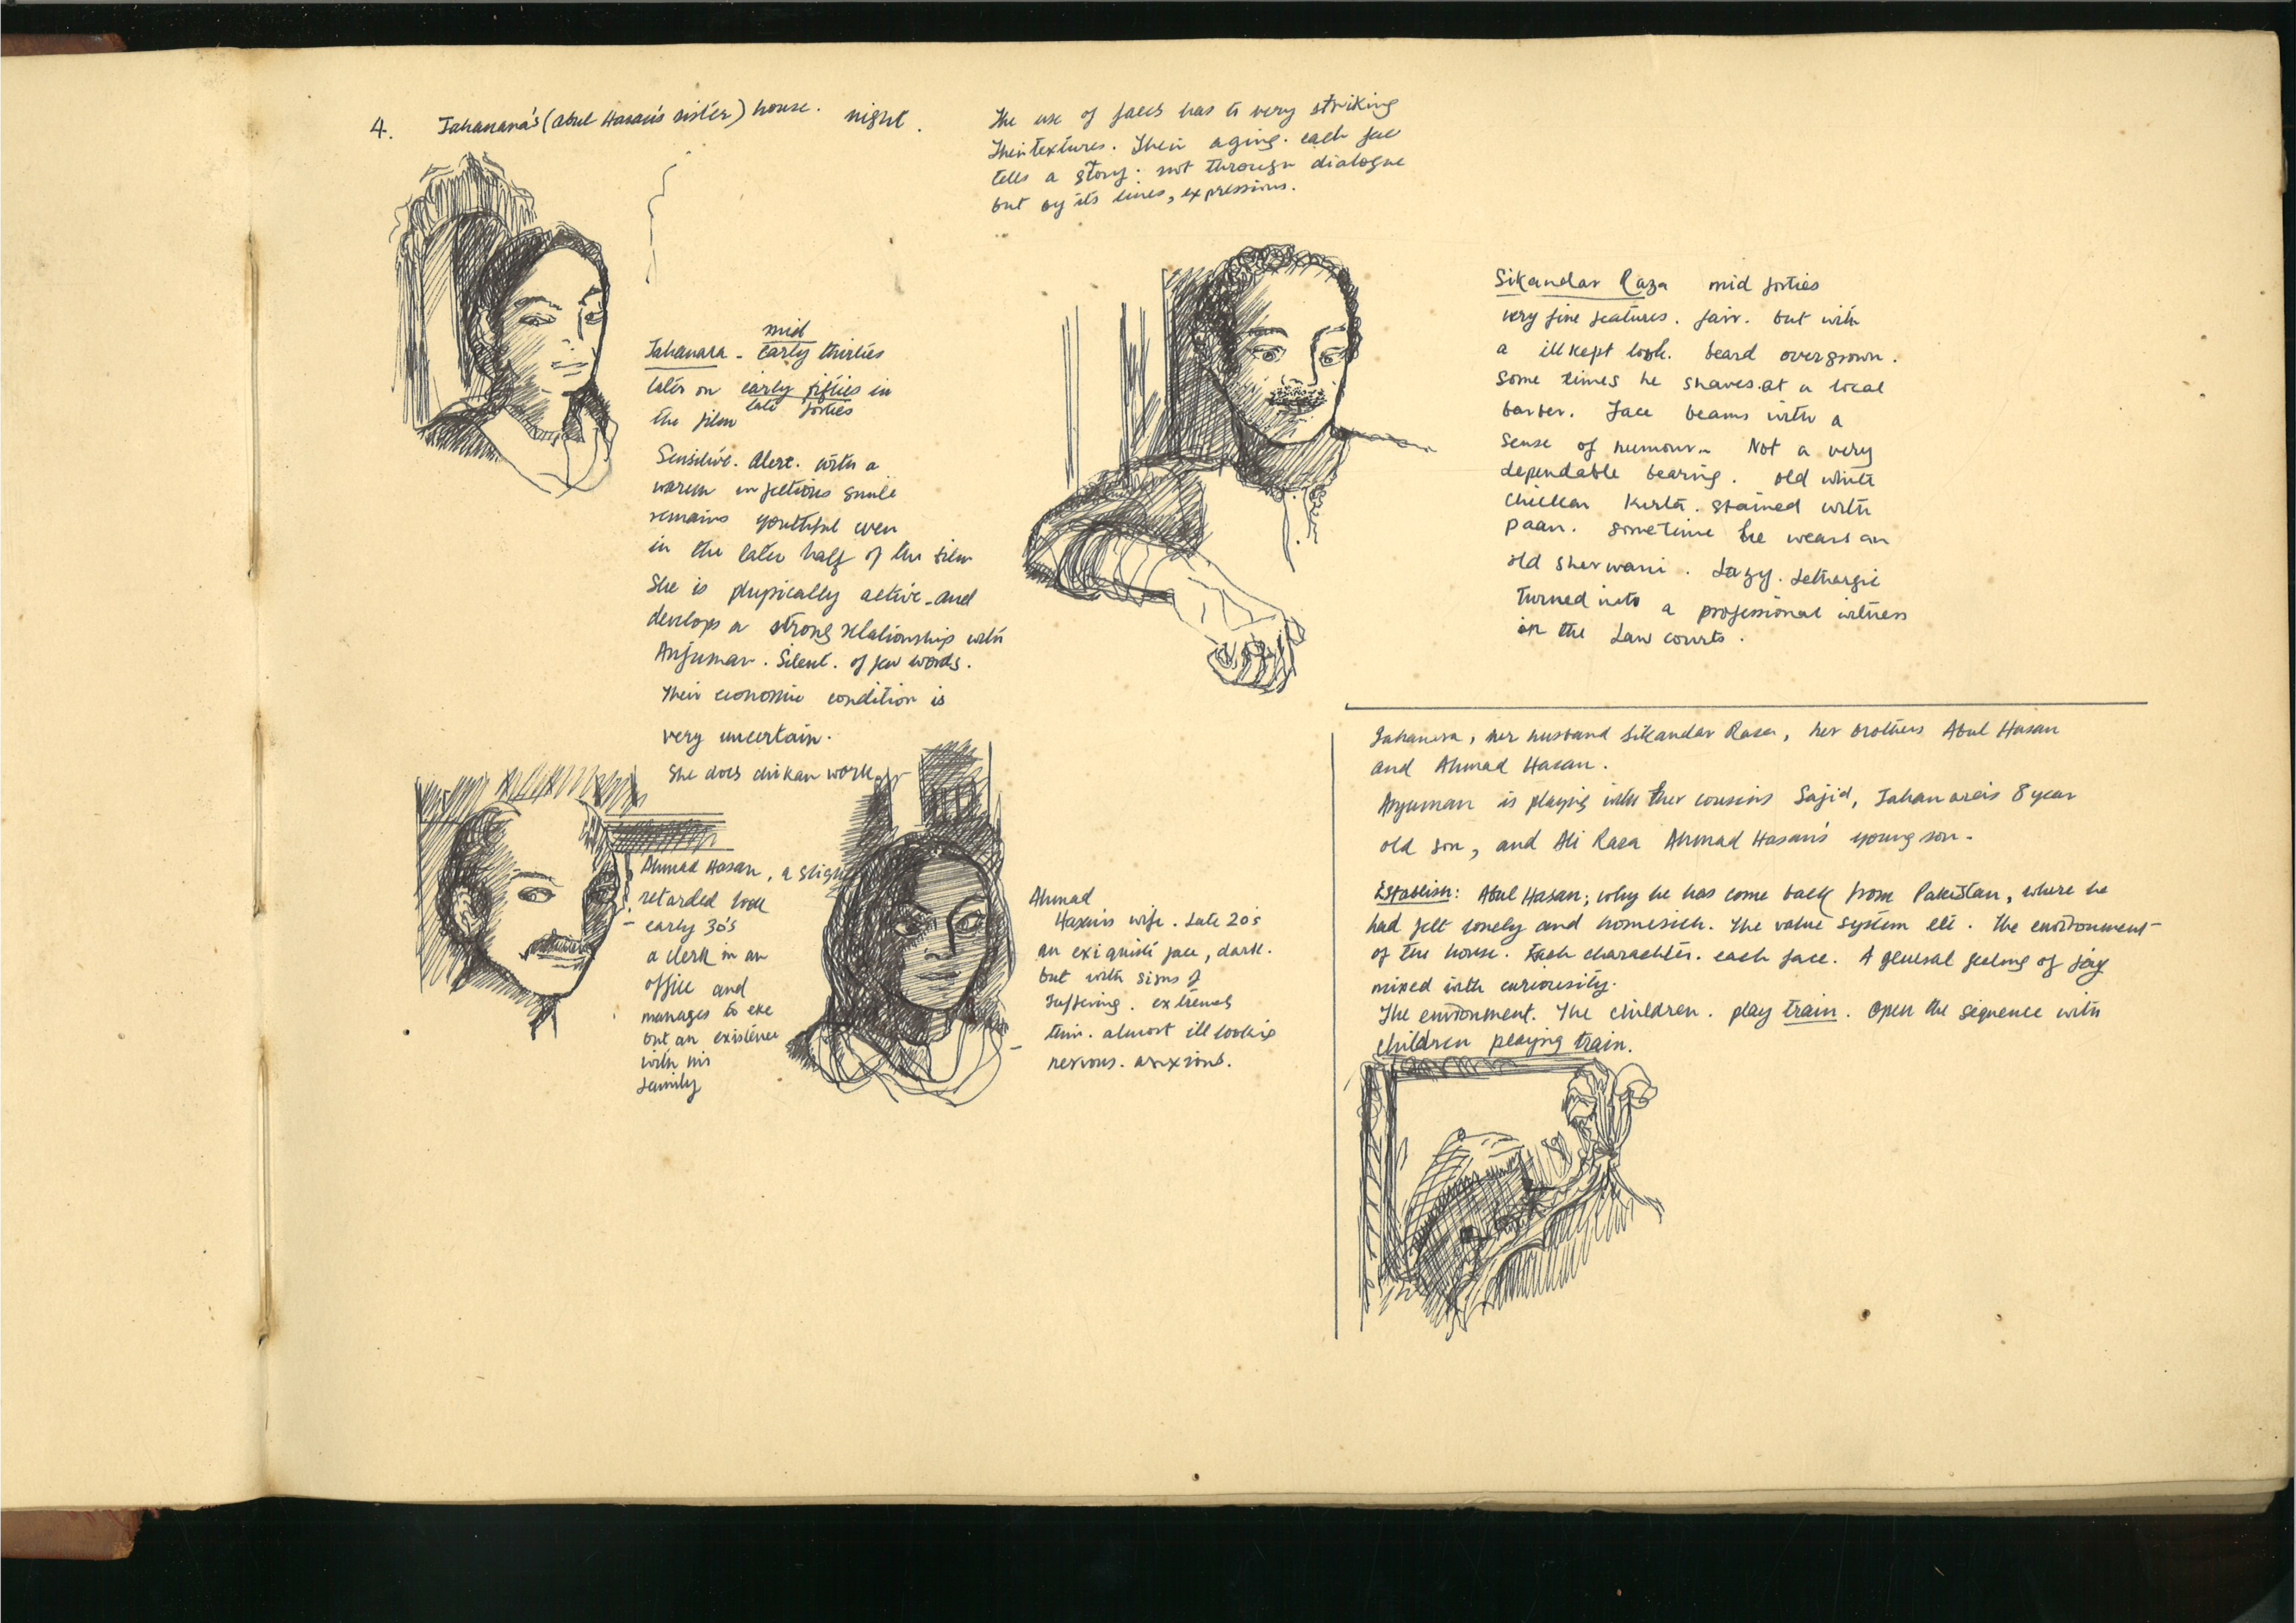 4. Jahanara's (Abul Hasan's sister) house. night.
The use of faces has to very striking
Their textures. Their aging. each face
tells a story. not through dialogue
but by its lines, expressions.
mid
Jahanara - early thirties
later on early fifties in
late forties
the film
Sensitive. Alert. with a
warm infectious smile
remains youthful even
in the later half of the film
She is physically active - and
develops a strong relationship with
Anjuman. Silent. of few words.
Their economic condition is
very uncertain.
She does chikan work
Sikandar Raza mid forties
very fine features. fair. but with
a ill kept look. beard overgrown.
Some times he shaves at a local
barber. Face beams with a
sense of humour. Not a very
dependable bearing. old white
chickan Kurta. stained with
paan. sometime he wears an
old sherwani. Lazy. Lethargic
turned into a professional witness
in the Law courts.
Ahmad Hasan, a slight
retarded look
- early 30's
a clerk in an
office and
manages to eke
out an existence
with his
family
Ahmad
Hasan's wife. Late 20's
an exiquisite face, dark.
but with signs of
suffering. extremely
thin. almost ill looking
nervous. anxious.
Jahanara, her husband Sikandar Raza, her brothers Abul Hasan
and Ahmad Hasan.
Anjuman is playing with her cousins Sajid, Jahanara's 8 year
old son, and Ali Raza Ahmad Hasan's young son.
Establish: Abul Hasan; why he has come back from Pakistan, where he
had felt lonely and homesick. The value system etc. The environment
of the house. Each charachter. each face. A general feeling of joy
mixed with curiousity.
The environment. The children. play train. Open the sequence with
children playing train.